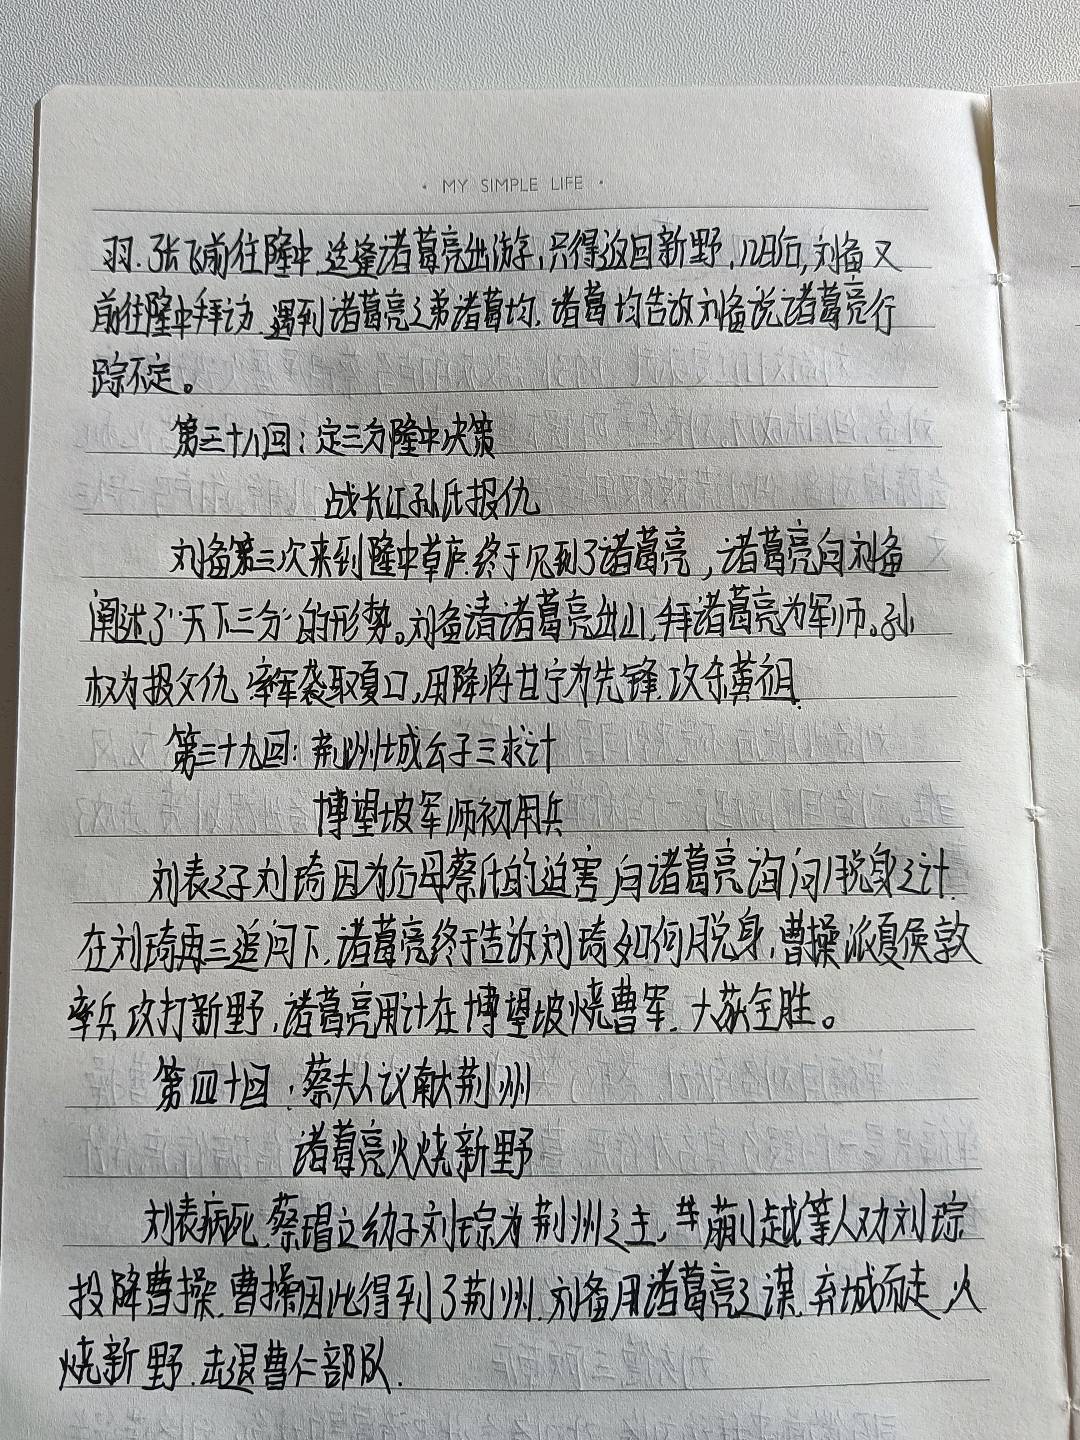 · MY SIMPLE LIFE ·
羽、张飞前往隆中,送逢诸葛亮出游,只得返回新野,几日后,刘备又
前往隆中拜访,遇到诸葛亮之弟诸葛均,诸葛均告放刘备说诸葛亮行
踪不定。
第三十八回:定三分隆中决策
战长江孙氏报仇
刘备第三次来到隆中草庐,终于见到了诸葛亮,诸葛亮向刘备
阐述了“天下三分”的形势。刘备请诸葛亮出山,拜诸葛亮为军师。孙
权为报父仇,率军袭取夏口,用降将甘宁为先锋,攻杀黄祖.
第三十九回:荆州城公子三求计
博望坡军师初用兵
刘表之子刘琦因为后母蔡氏的迫害,向诸葛亮询问脱身之计.
在刘琦再三追问下,诸葛亮终于告放刘琦如何脱身,曹操派夏侯敦
率兵攻打新野,诸葛亮用计在博望坡烧曹军.大获全胜。
第四十回:蔡夫人议献荆州
诸葛亮火烧新野
刘表病死,蔡瑁立幼子刘琮为荆州之主,蒯越等人劝刘琮
投降曹操,曹操因此得到了荆州.刘备用诸葛亮之谋,弃城而走,火
烧新野.击退曹仁部队.